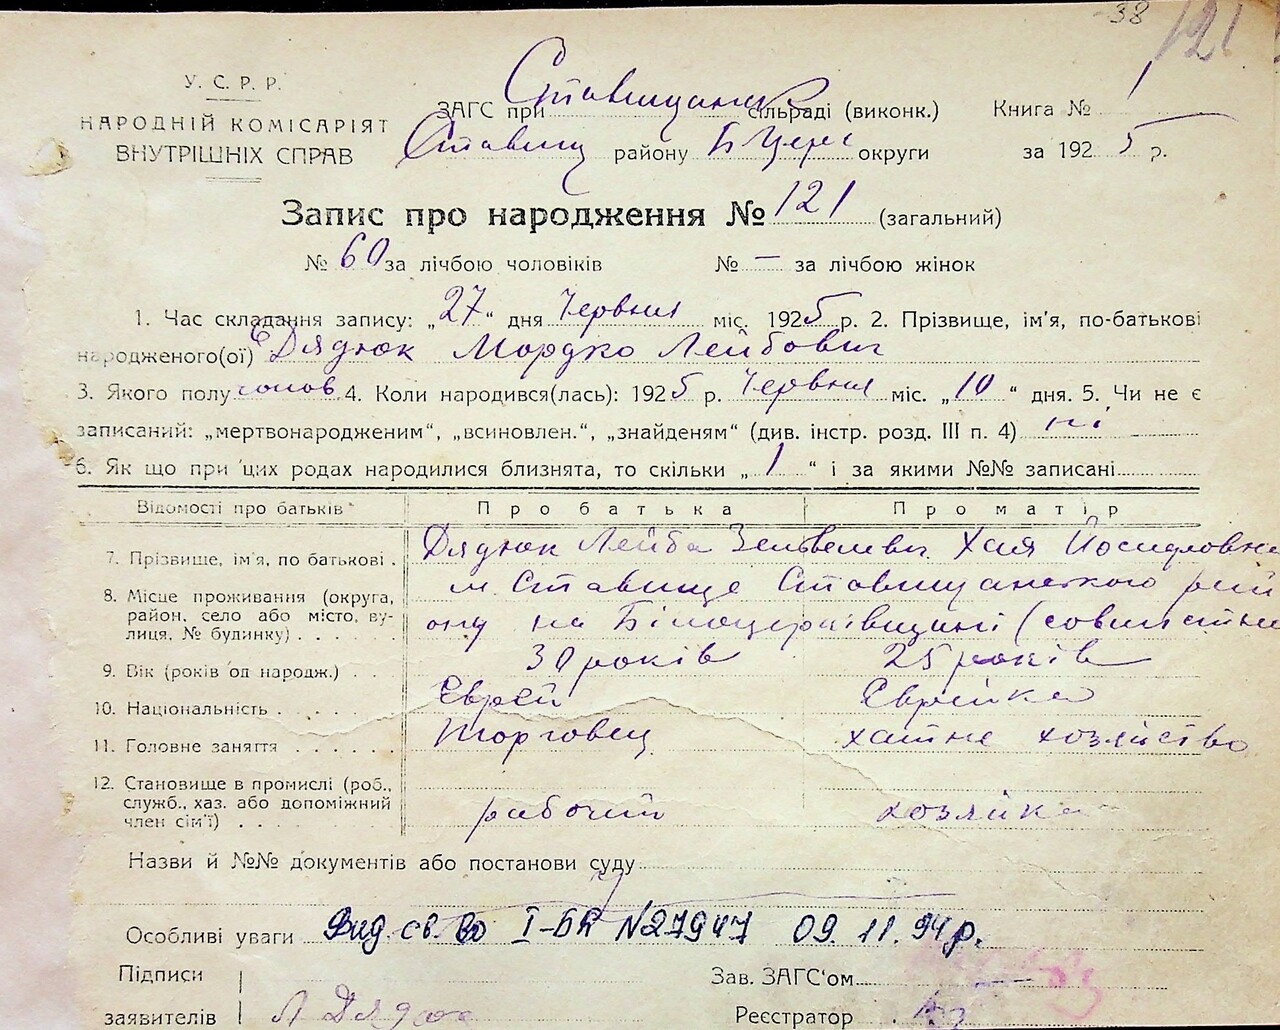 38
121
У. С. Р. Р.
НАРОДНІЙ КОМІСАРІЯТ
ВНУТРІШНІХ СПРАВ
ЗАГС при Ставищанск сільраді (виконк.) Книга № 1
Ставищ району БЦерк округи за 1925 р.
Запис про народження № 121 (загальний)
№ 60 за лічбою чоловіків № — за лічбою жінок
1. Час складання запису: „27“ дня Червня міс. 1925 р. 2. Прізвище, ім'я, по-батькові
народженого(ої) Дядюк Мордко Лейбович
3. Якого полу чолов. 4. Коли народився(лась): 1925 р. Червня міс. „10“ дня. 5. Чи не є
записаний: „мертвонародженим“, „всиновлен.“, „знайденям“ (див. інстр. розд. III п. 4) ні
6. Як що при цих родах народилися близнята, то скільки „1“ і за якими №№ записані
Відомості про батьків Про батька Про матір
7. Прізвище, ім'я, по батькові . Дядюк Лейба Зельвелевич Хая Йосиповна
8. Місце проживання (округа, район, село або місто, вулиця, № будинку) . . . . м. Ставище Ставищанского рай
ону на Білоцерківщині (совмістно
9. Вік (років од народж.) . . 30 років 25 років
10. Національність . . . . Єврей Єврейка
11. Головне заняття . . . . . . торговец хатне хозяйство
12. Становище в промислі (роб., служб., хаз. або допоміжний член сім'ї) . . рабочий хозяйка
Назви й №№ документів або постанови суду
Особливі уваги Вид. св. во І-БК №27947 09. 11. 94 р.
Підписи Зав. ЗАГС'ом
заявителів Л Дядюк Реєстратор